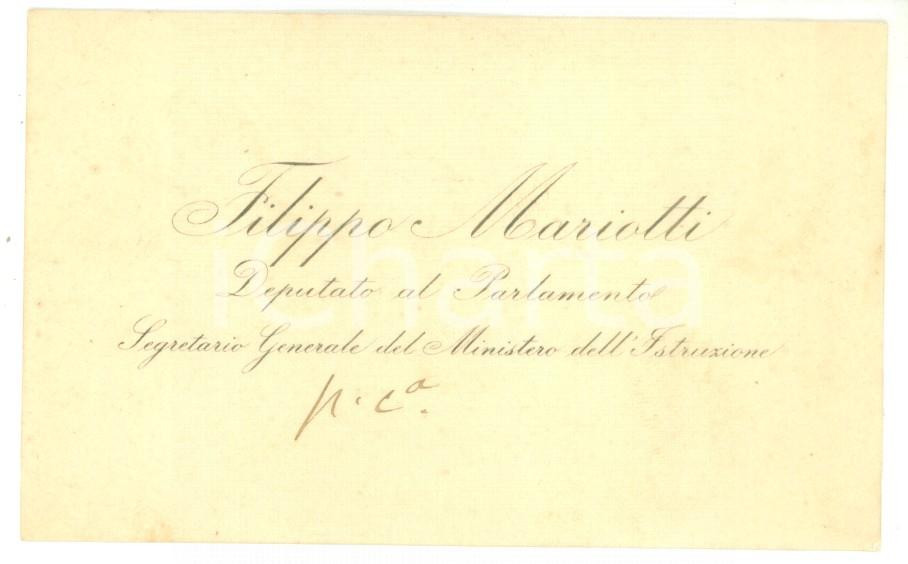 Filippo Mariotti
Deputato al Parlamento
Segretario Generale del Ministero dell'Istruzione
p. cª.
iCharta